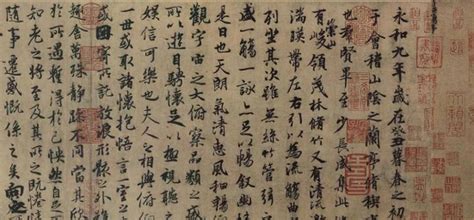 永和九年歲在癸丑暮春之初
于會稽山陰之蘭亭脩禊
也羣賢畢至少長咸集此
有崇山峻領茂林脩竹又有清流
湍暎帶左右引以為流觴曲
列坐其次雖無絲竹管弦
盛一觴一詠亦足以暢敘幽
是日也天朗氣清惠風和暢
觀宇宙之大俯察品類之
所以遊目騁懷足以極視聽之
娛信可樂也夫人之相與俯仰
一世或取諸懷抱悟言一室之
或因寄所託放浪形骸之外
趣舍萬殊靜躁不同當其欣
於所遇蹔得於己怏然自足
知老之將至及其所之既惓
隨事遷感慨係之矣向之